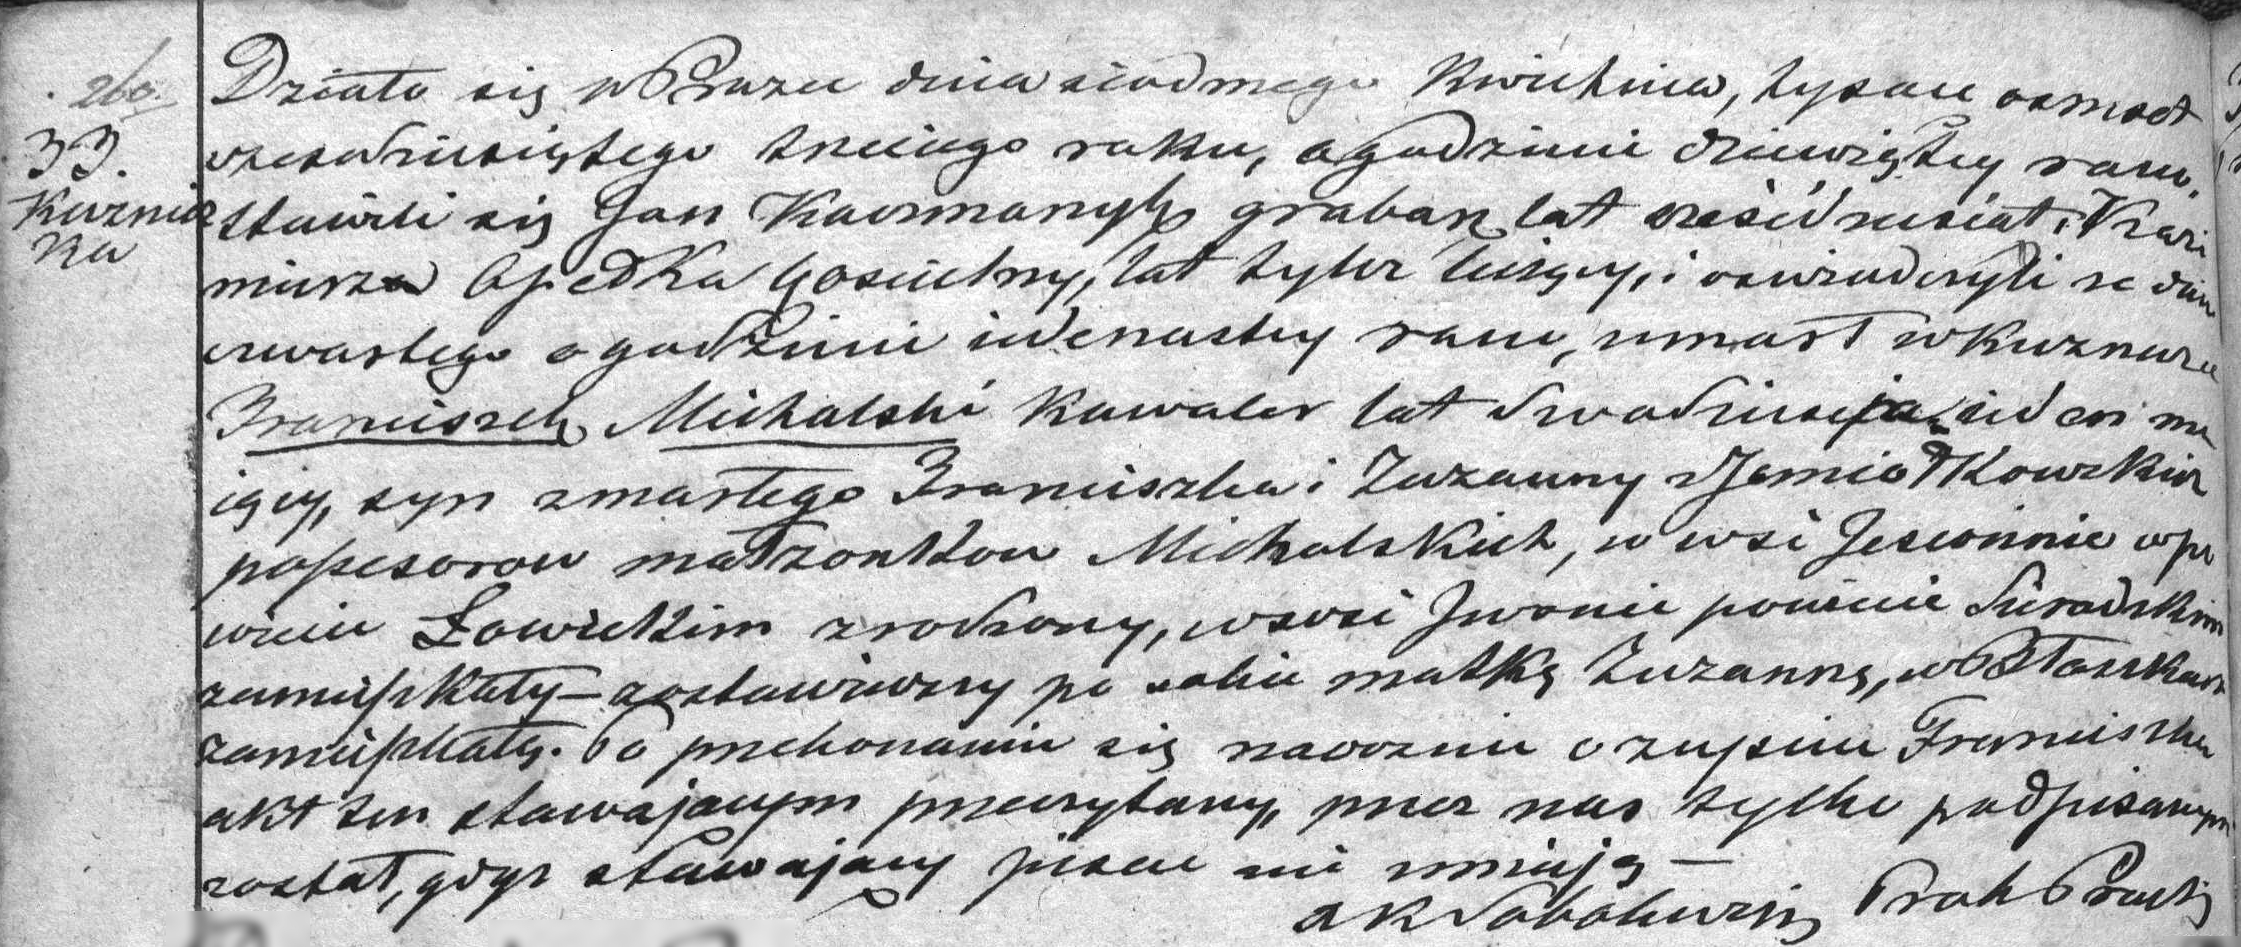 260.
33.
Kuznicz
ka
Działo się w Brużu dnia siodmego Kwietnia, tysiąc osmset
szescdziesiątego trzeciego roku, o godzinie dziewiątey rano,
stawili się Jan Kaczmaryk grabarz lat sześćdziesiat i Kazi
mierz Osedka Gościelny, lat tyleż liczący, i oswiadczyli że dnia
czwartego o godzinie iedenastey rano, umarł w Kuznicze
Franciszek Michalski Kawaler lat dwadziescia ieden ma
iący, syn zmarłego Franciszka i Zuzanny z Jemiołkowskich
possesorow małżonkow Michalskich, w wsi Jesionnie w po
wiecie Łowickim zrodzony, w wsi Iwonie powiecie Sieradzkim
zamieszkały – zostawiwszy po sobie matkę Zuzannę, w Błaszkach
zamieszkałą. Po przekonaniu się naocznie o zejsciu Franciszka
akt ten stawającym przeczytany, przez nas tylko podpisanym
został, gdyż stawający pisać nie umieją —
X K Prob